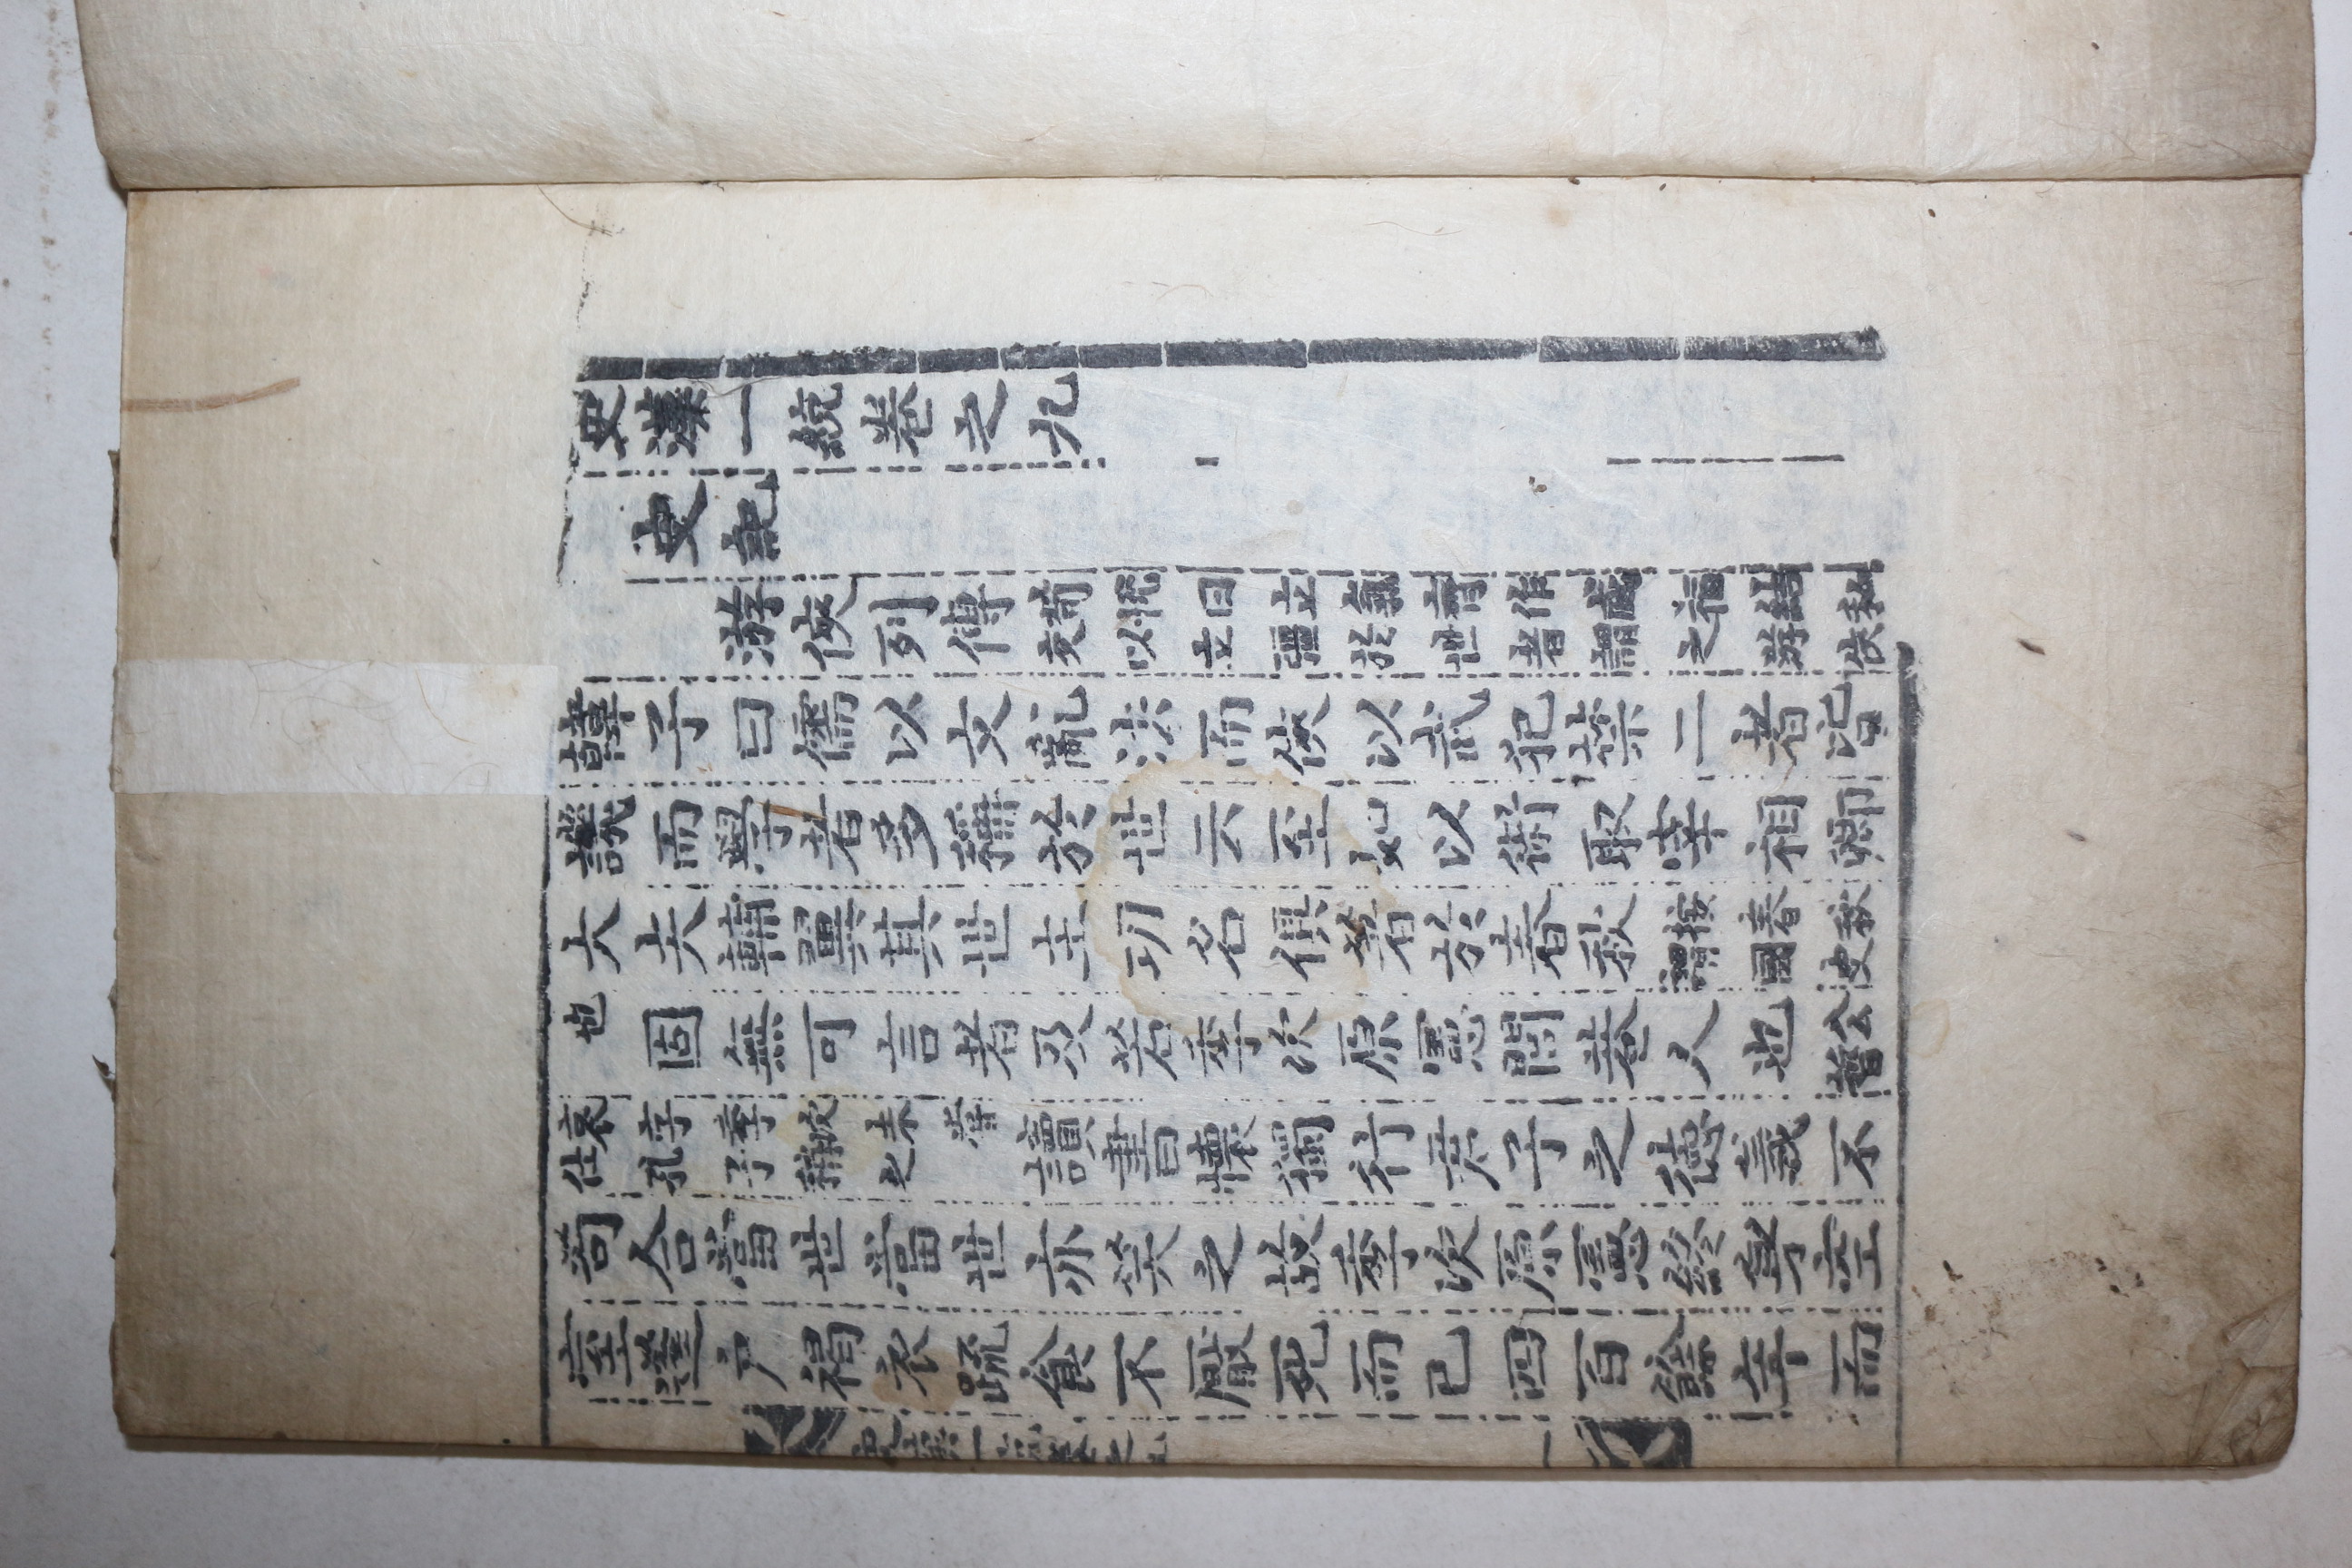 史漢一統卷之九
史記
游俠列傳 荀悅曰立氣齊作威福結私交以立彊於世者謂之游俠
韓子曰儒以文亂法而俠以武犯禁二者皆
譏而學者多稱於世云至如以術取宰相卿
大夫輔翼其世主功名俱著於春秋 按春秋謂國史
也 固無可言者及若季次原憲閭巷人也 公晳
哀字季次未嘗仕孔子稱之 讀書懷獨行君子之德義不
苟合當世當世亦笑之故季次原憲終身空
室蓬户褐衣疏食不厭死而已四百餘年而
史漢一統卷之九
一